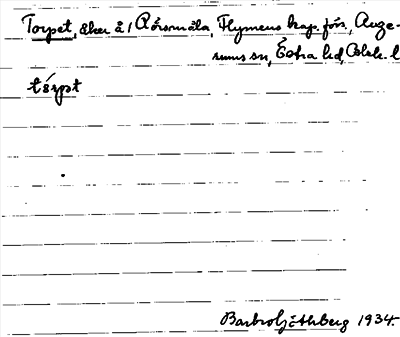 Torpet, åker å 1 Rörsmåla, Flymens kap.förs., Auge-
rums sn, Östra hd, Blek. l
tɷrpt
Barbro Göthberg 1934.